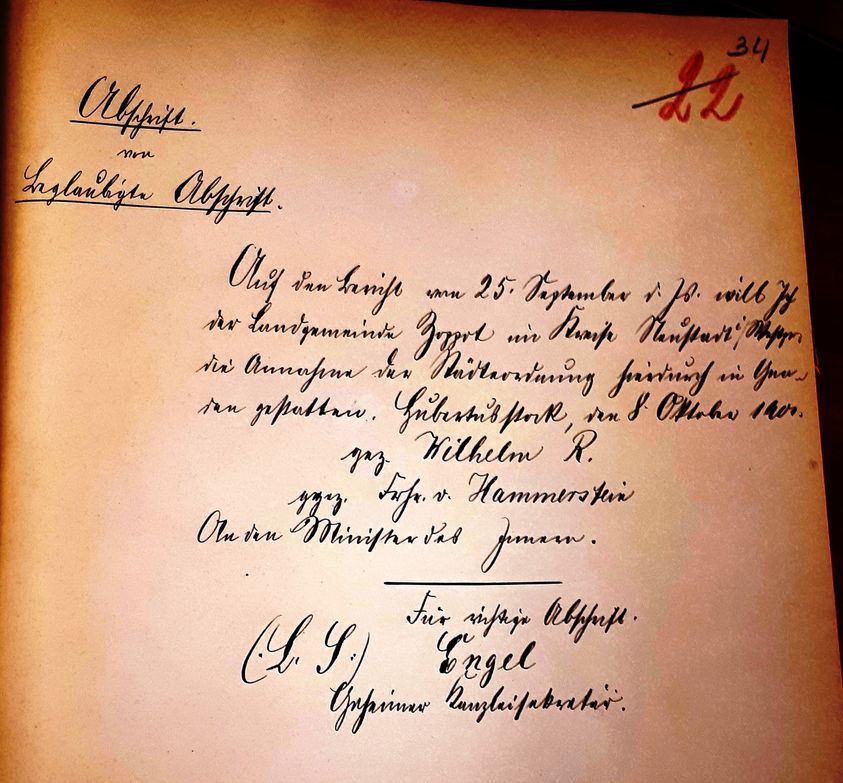 34
22
Abschrift.
von
Beglaubigte Abschrift.
Auf den Bericht vom 25. September d. Js. will Ich
der Landgemeinde Zoppot im Kreise Neustadt i/Westpr.
die Annahme der Städteordnung hierdurch in Gna-
den gestatten. Hubertusstock, den 8. Oktober 1901.
gez. Wilhelm R.
ggez. Frhr. v. Hammerstein
An den Minister des Innern.
Für richtige Abschrift.
(:L. S.:) Engel
Geheimer Kanzleisekretär.